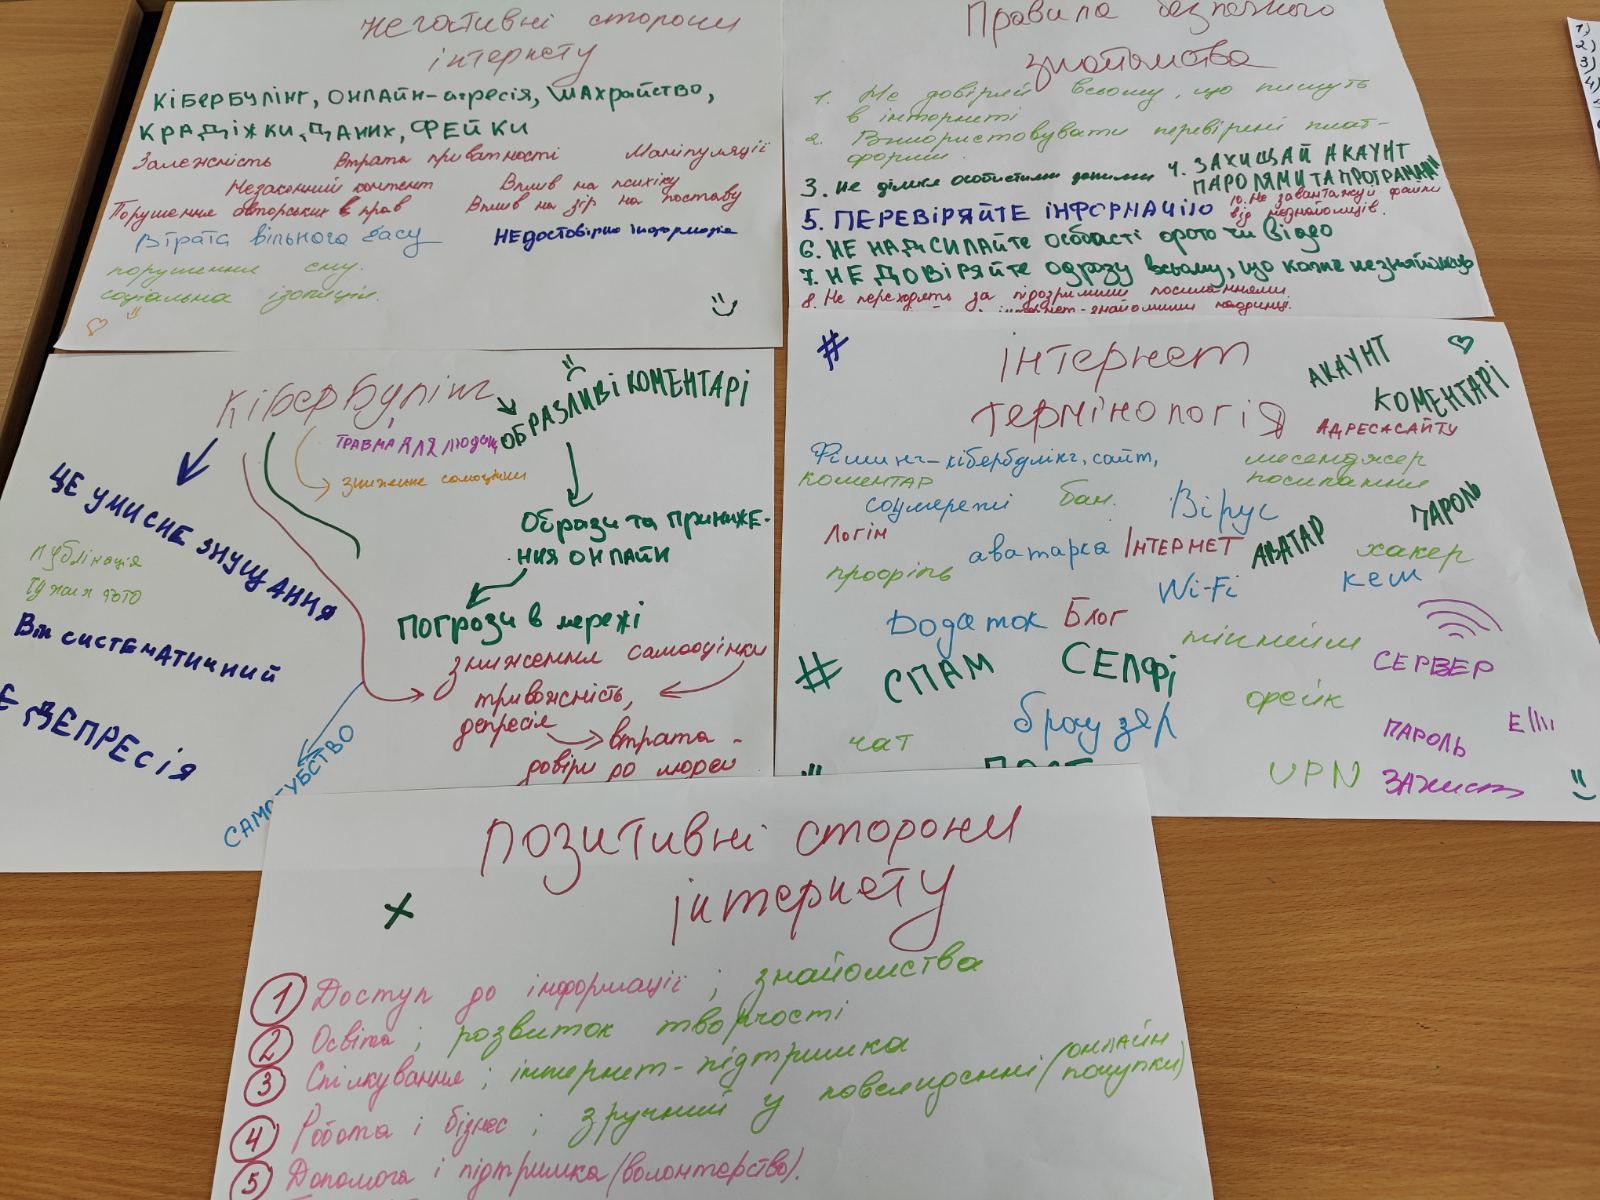 негативні сторони
інтернету
Кібербулінг, онлайн-агресія, шахрайство,
крадіжки даних, фейки
Залежність Втрата приватності Маніпуляції
Незаконний контент Вплив на психіку
Порушення авторських прав Вплив на зір на поставу
Втрата вільного часу НЕдостовірна інформація
порушення сну.
соціальна ізоляція.
Правила безпечного
знайомства
1. Не довіряй всьому, що пишуть
в інтернеті
2. Використовувати перевірені плат-
форми.
3. Не ділися особистими даними
4. ЗАХИЩАЙ АКАУНТ
ПАРОЛЯМИ ТА ПРОГРАМАМИ
5. ПЕРЕВІРЯЙТЕ ІНФОРМАЦІЮ
10. Не завантажуй файли
від незнайомців.
6. НЕ НАДСИЛАЙТЕ особисті фото чи відео
7. НЕ ДОВІРЯЙТЕ одразу всьому, що каже незнайомець
8. Не переходять за підозрілими посиланнями.
інтернет-знайомими наодинці.
Кібербулінг
ОБРАЗЛИВІ КОМЕНТАРІ
ТРАВМА ДЛЯ людини
зниження самооцінки
ЦЕ УМИСНЕ ЗНУЩАННЯ
Образи та приниже-
ння онлайн
Публікація
чужих фото
Він систематичний
Погрози в мережі
зниження самооцінки
тривожність,
депресія
втрата
довіри до людей
Є ДЕПРЕСІЯ
САМОГУБСТВО
#
інтернет
термінологія
АКАУНТ
КОМЕНТАРІ
АДРЕСА САЙТУ
Фішинг-кібербулінг, сайт,
коментар
месенджер
посилання
соцмережі бан. Вірус ПАРОЛЬ
Логін аватарка ІНТЕРНЕТ АВАТАР хакер
профіль Wi-Fi кеш
Додаток Блог нікнейм
СЕРВЕР
# СПАМ СЕЛФІ
фейк
браузер
чат
ПАРОЛЬ
ПОСТ
VPN ЗАХИСТ
позитивні сторони
інтернету
1 Доступ до інформації ; знайомства
2 Освіта ; розвиток творчості
3 Спілкування ; інтернет-підтримка
4 Робота і бізнес ; зручний у повсякденні (онлайн
покупки)
5 Допомога і підтримка (волонтерство).
1)
2)
3)
4)